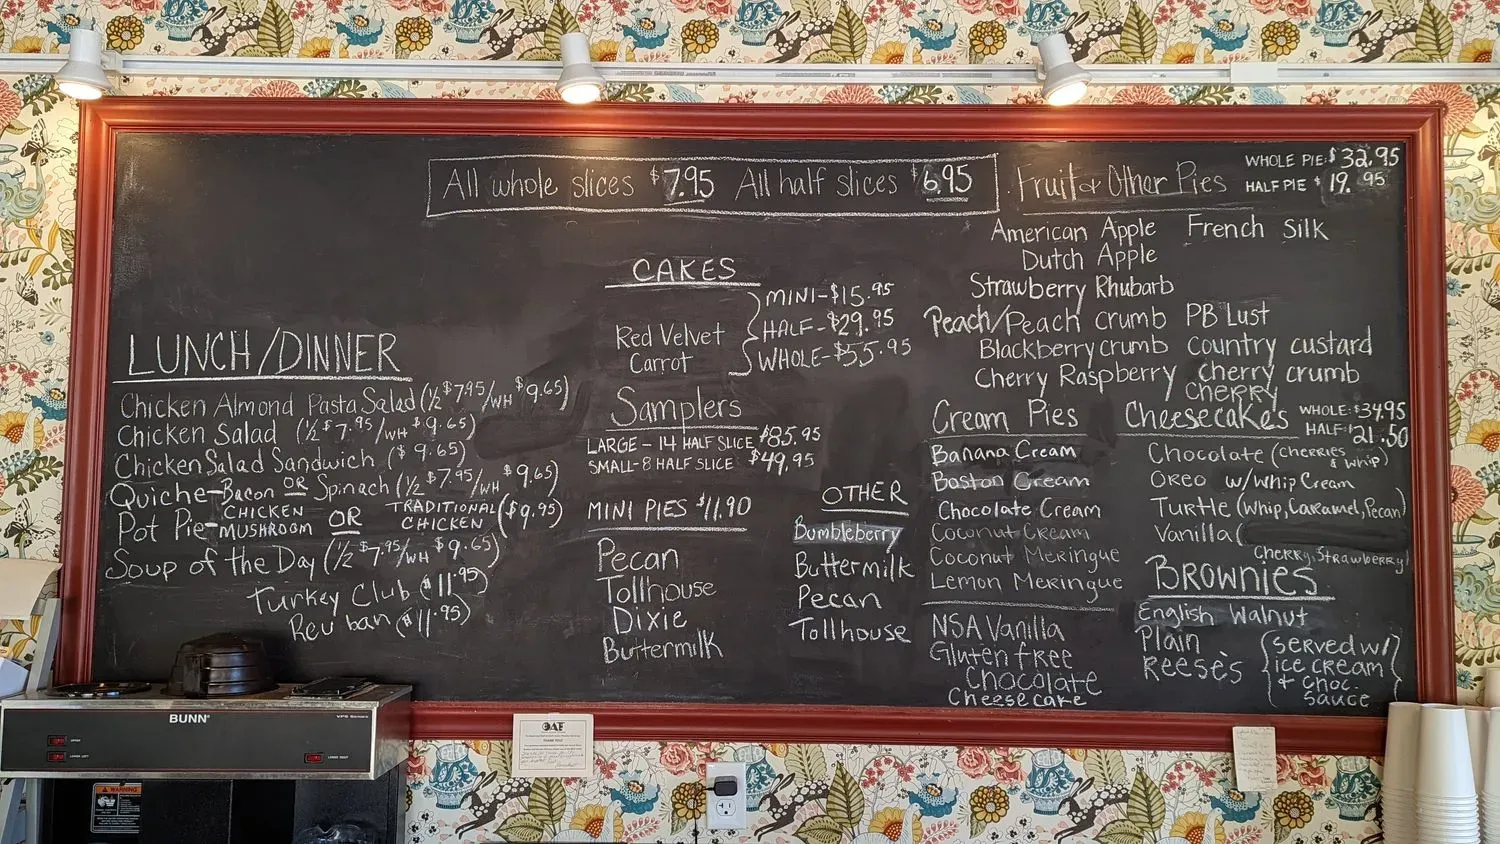 All whole slices $7.95 All half slices $6.95
LUNCH/DINNER
Chicken Almond Pasta Salad (½ $7.95/WH $9.65)
Chicken Salad (½ $7.95/WH $9.65)
Chicken Salad Sandwich ($9.65)
Quiche-Bacon OR Spinach (½ $7.95/WH $9.65)
Pot Pie- CHICKEN MUSHROOM OR TRADITIONAL CHICKEN ($9.95)
Soup of the Day (½ $7.95/WH $9.65)
Turkey Club ($11.95)
Reuban ($11.95)
CAKES
Red Velvet
Carrot
MINI-$15.95
HALF-$29.95
WHOLE-$55.95
Samplers
LARGE - 14 HALF SLICE $85.95
SMALL-8 HALF SLICE $49.95
MINI PIES $11.90
Pecan
Tollhouse
Dixie
Buttermilk
OTHER
Bumbleberry
Buttermilk
Pecan
Tollhouse
Fruit & Other Pies
WHOLE PIE: $32.95
HALF PIE $19.95
American Apple
Dutch Apple
Strawberry Rhubarb
Peach/Peach crumb
Blackberry crumb
Cherry Raspberry
French Silk
PB Lust
Country custard
cherry crumb
CHERRY
Cream Pies
Banana Cream
Boston Cream
Chocolate Cream
Coconut Cream
Coconut Meringue
Lemon Meringue
NSA Vanilla
Gluten free
Chocolate
Cheesecake
Cheesecakes
WHOLE: $34.95
HALF: $21.50
Chocolate (cherries & whip)
OREO w/Whip Cream
Turtle (Whip, Caramel, Pecan)
Vanilla (
Cherry, Strawberry)
BROWNIES
English Walnut
Plain
Reese's
{served w/
ice cream
+ choc.
sauce}
BUNN
VPS SERIES
UPPER
LOWER LEFT
LOWER RIGHT
WARNING
THANK YOU